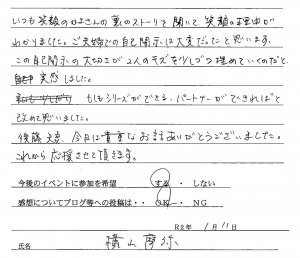 いつも笑顔の ひよさんの 裏のストーリーを聞いて、笑顔の理由が
わかりました。ご夫婦での自己開示は大変だったと思います。
この自己開示の大切さが 2人のキズを少しづつ埋めていくのだと、
実感しました。
もしもシリーズができる、パートナーができればと
改めて思いました。
後藤 今日は貴重なお話ありがとうございました。
これから応援させて頂きます。
今後のイベントに参加を希望 する ・ しない
感想についてブログ等への投稿は・・ OK ・ NG
R2年 1月 11日
氏名 横山